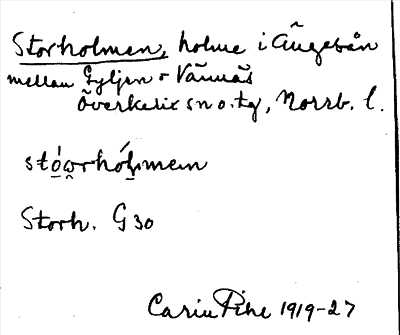 Storholmen, holme i Ängesån
mellan Gyljen o Vännäs
Överkalix sn o. tg, Norrb. l.
stó̱w̱rhó̱ḻmem
Storh. G 30
Carin Pihl 1919-27